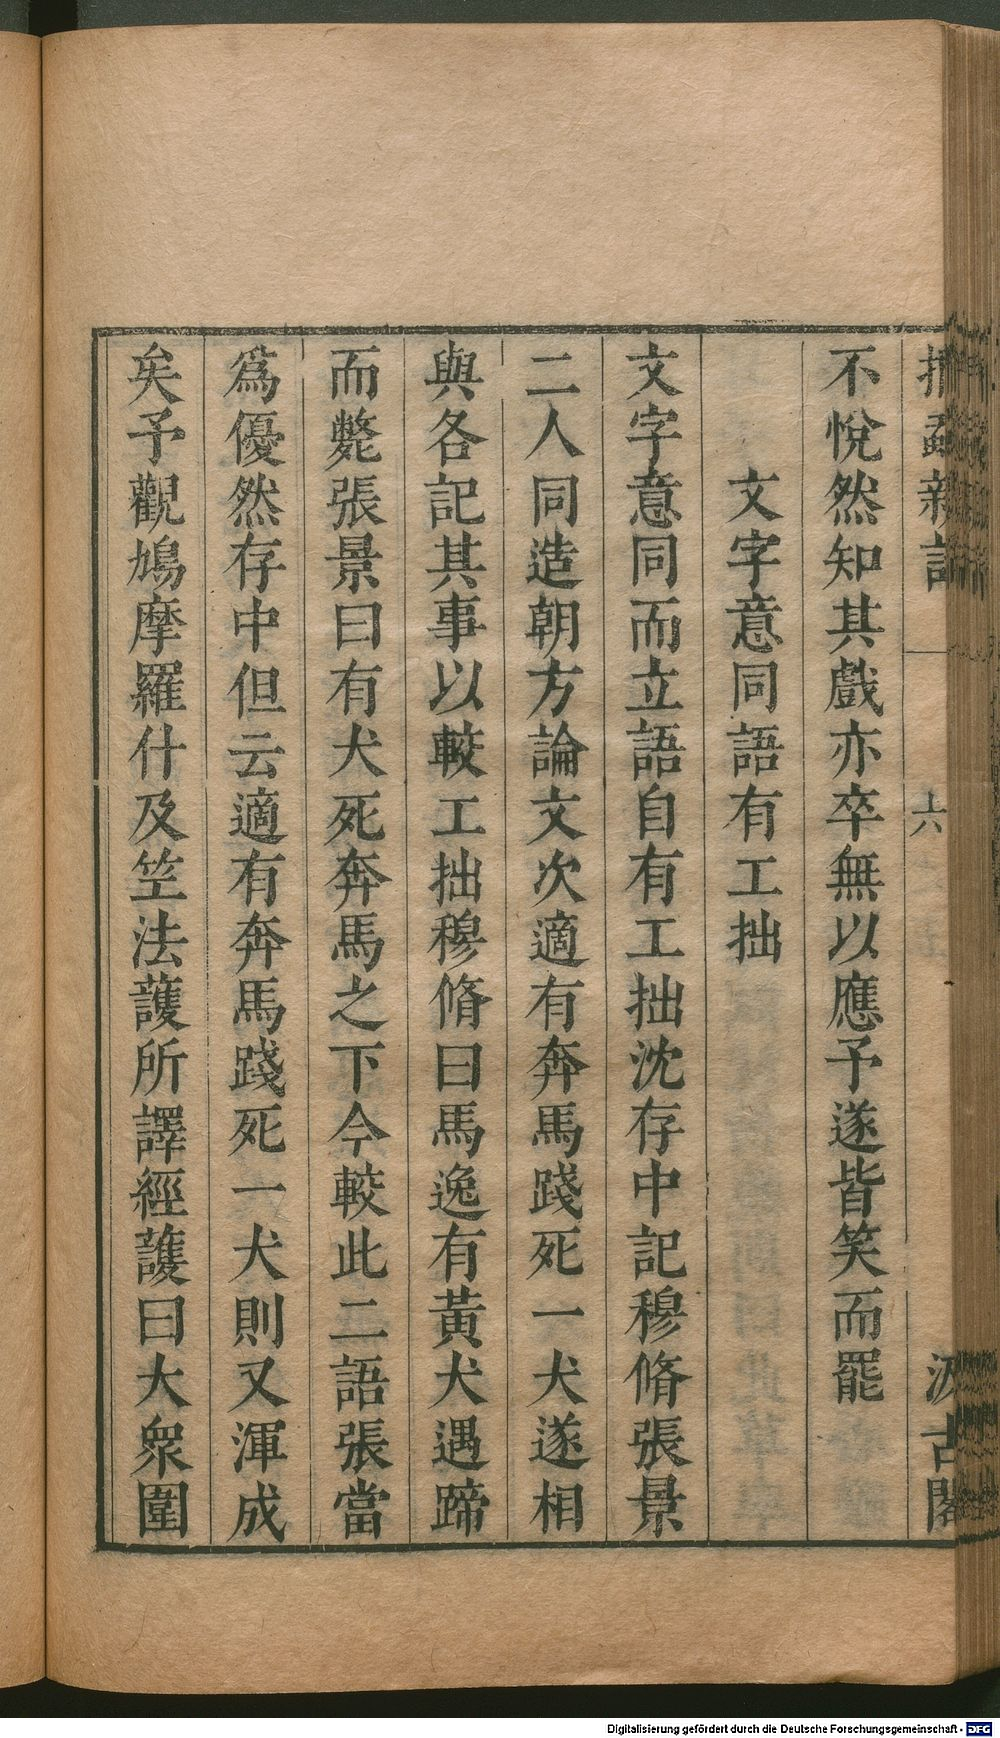 捫蝨新語
六
汲古閣
不悅然知其戲亦卒無以應予遂皆笑而罷
文字意同語有工拙
文字意同而立語自有工拙沈存中記穆脩張景
二人同造朝方論文次適有奔馬踐死一犬遂相
與各記其事以較工拙穆脩曰馬逸有黃犬遇蹄
而斃張景曰有犬死奔馬之下今較此二語張當
爲優然存中但云適有奔馬踐死一犬則又渾成
矣予觀鳩摩羅什及笁法護所譯經護曰大衆圍
Digitalisierung gefördert durch die Deutsche Forschungsgemeinschaft - DFG